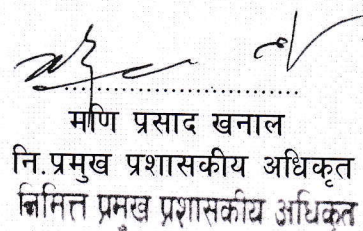 मणि प्रसाद खनाल
नि.प्रमुख प्रशासकीय अधिकृत
निमित्त प्रमुख प्रशासकीय अधिकृत